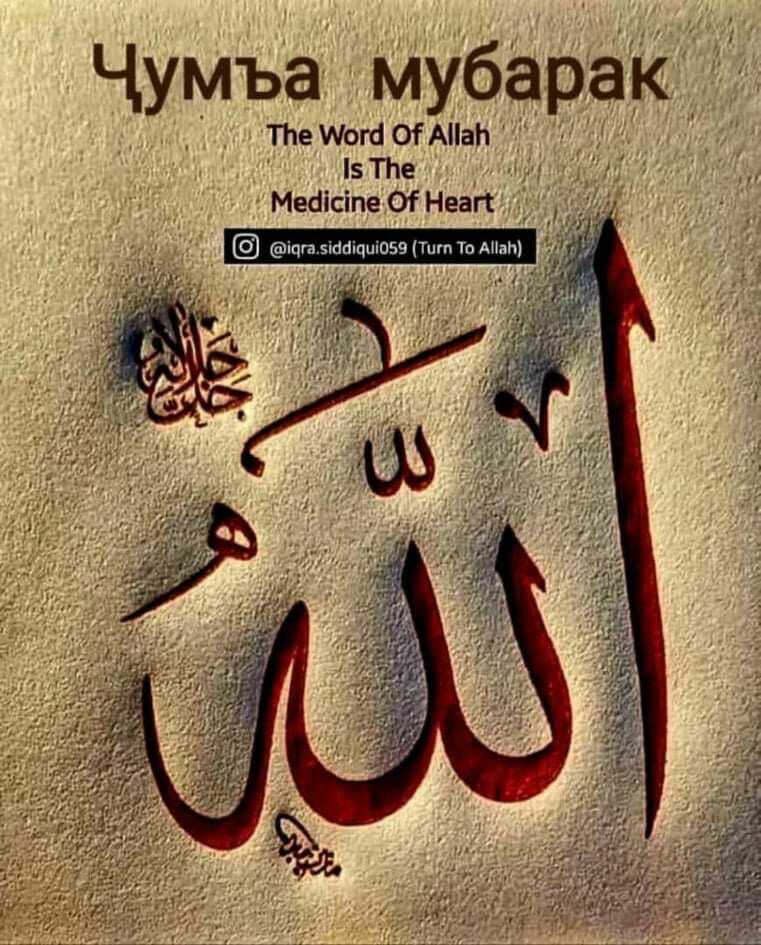 Ҷумъа мубарак
The Word Of Allah
Is The
Medicine Of Heart
@iqra.siddiqui059 (Turn To Allah)
جل جلاله
اللَّهُ